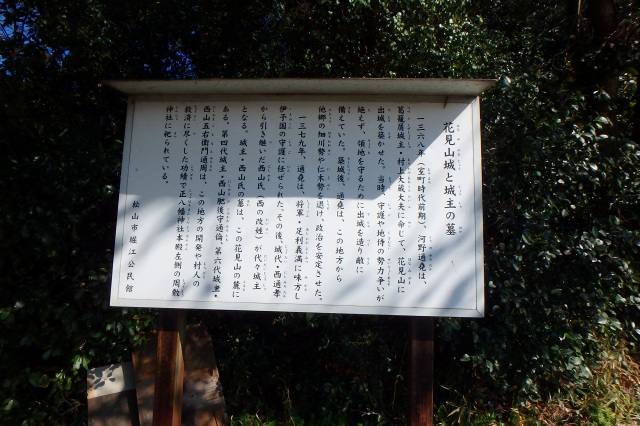 花見山城と城主の墓
一三六八年(室町時代前期)、河野通堯は、
葛籠屑城主・村上大蔵大夫に命じて、花見山に
出城を築かせた。当時、守護や地侍の勢力争いが
絶えず、領地を守るために出城を造り敵に
備えていた。築城後、通堯は、この地方から
他郷の細川勢や仁木勢を退け、政治を安定させた。
一三七九年、通堯は、将軍・足利義満に味方し
伊予国の守護に任ぜられた。その後、城代・西通孝
から引き継いだ西山氏(西の改姓)が代々城主
となる。城主・西山氏の墓は、この花見山の麓に
ある。第四代城主・西山肥後守通倫、第六代城主・
西山五右衛門通周は、この地方の開発や村人の
救済に尽くした功績で正八幡神社本殿左側の周敷
神社に祀られている。
松山市堀江公民館